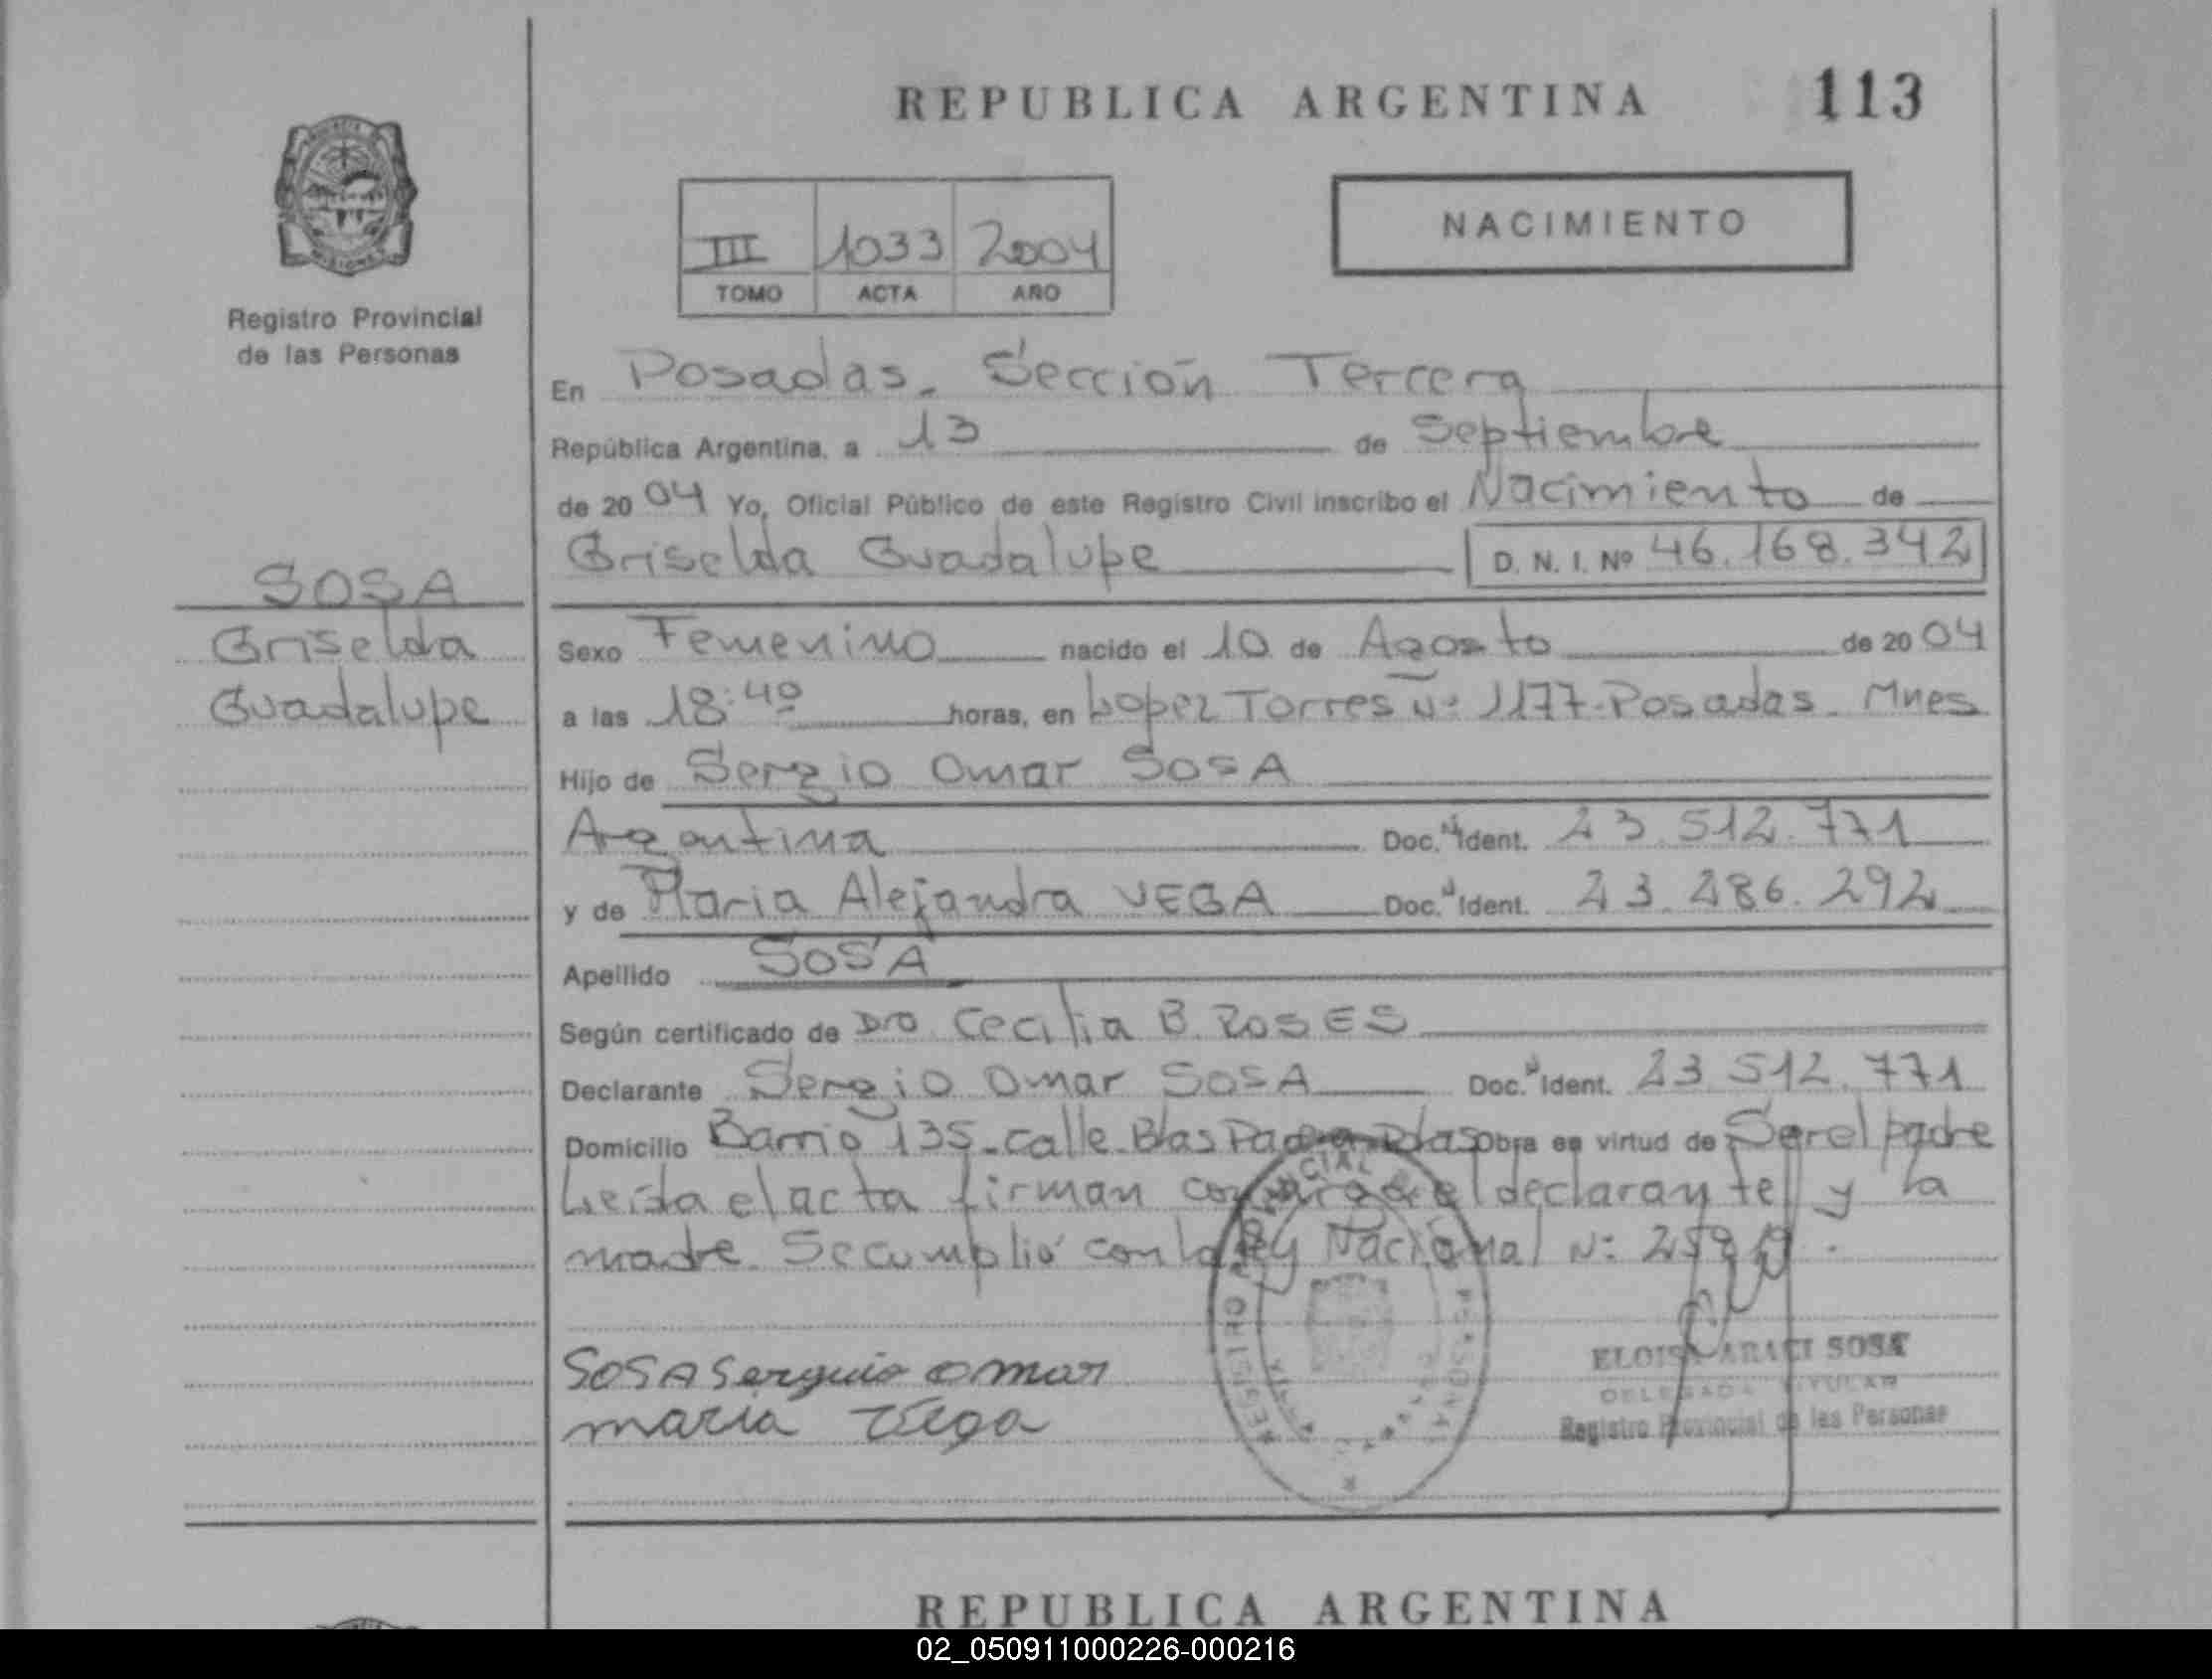 REPUBLICA ARGENTINA 113
NACIMIENTO
III 1033 2004
TOMO ACTA AÑO
Registro Provincial
de las Personas
En Posadas. Sección Tercera
República Argentina, a 13 de Septiembre
de 2004 Yo, Oficial Público de este Registro Civil inscribo el Nacimiento de
Griselda Guadalupe D. N. I. Nº 46.168.342
SOSA
Griselda
Guadalupe
Sexo Femenino nacido el 10 de Agosto de 2004
a las 18:40 horas, en Lopez Torres Nº 1177-Posadas. Mnes
Hijo de Sergio Omar SOSA
Argentina Doc. N Ident. 23.512.771
y de Maria Alejandra VEGA Doc. N Ident. 23.286.292
Apellido SOSA
Según certificado de Dra Cecilia B. ROSES
Declarante Sergio Omar SOSA Doc. N Ident. 23.512.771
Domicilio Barrio 135-calle Blas Obra en virtud de Ser el padre
Leída el acta firman el declarante y la
madre. Se cumplió con la ley Nacional Nº
SOSA Serguio omar
maria Vega
ELOISA ARACI SOSA
DELEGADA TITULAR
Registro Provincial de las Personas
REPUBLICA ARGENTINA
02_050911000226-000216